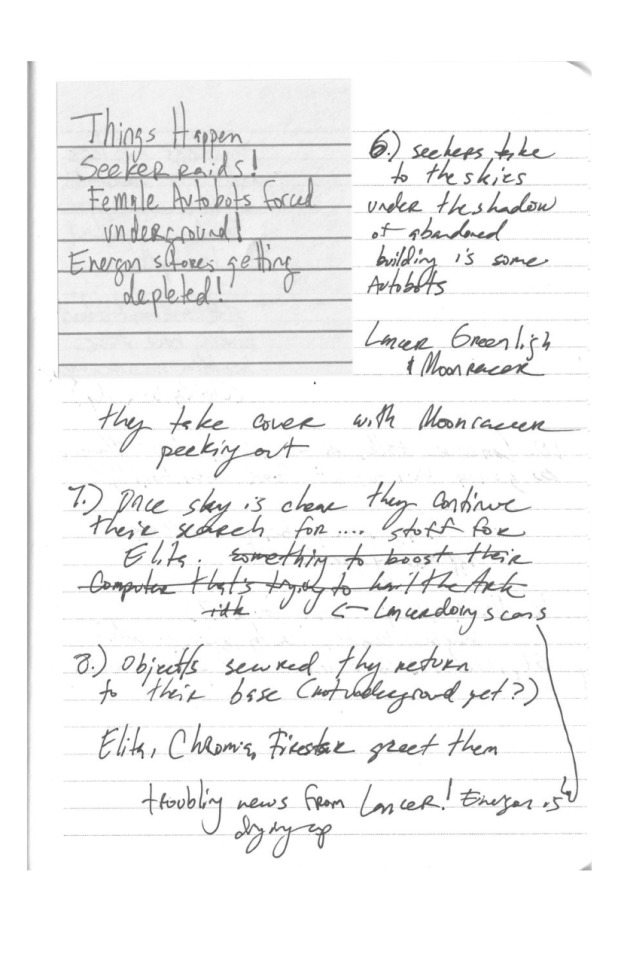 Things Happen
Seeker raids!
Female Autobots forced
underground!
Energon stores getting
depleted!
6.) seekers take
to the skies
under the shadow
of abandoned
building is some
Autobots
Lancer Greenligh
& Moonracer
they take cover with Moonracer
peeking out
7.) Once sky is clear they continue
their search for .... stuff for
Elita. something to boost their
Computer that's trying to hail the Ark
idk ← Lancer doing scans
8.) Objects secured they return
to their base (not underground yet?)
Elita, Chromia, Firestar greet them
troubling news from Lancer! Energon is
drying up